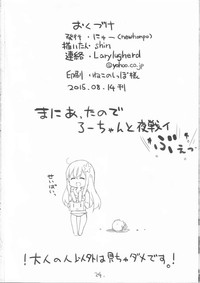 おくづけ
発行・にゅー (newhanpo)
描いたん・shin
連絡・Larylugherd
@yahoo.co.jp
印刷・ねこのしっぽ様
2015.08.14刊
まにあったので
ろーちゃんと夜戦イ
ぶぇっ
せいばい。
!大人の人以外は見ちゃダメです。!